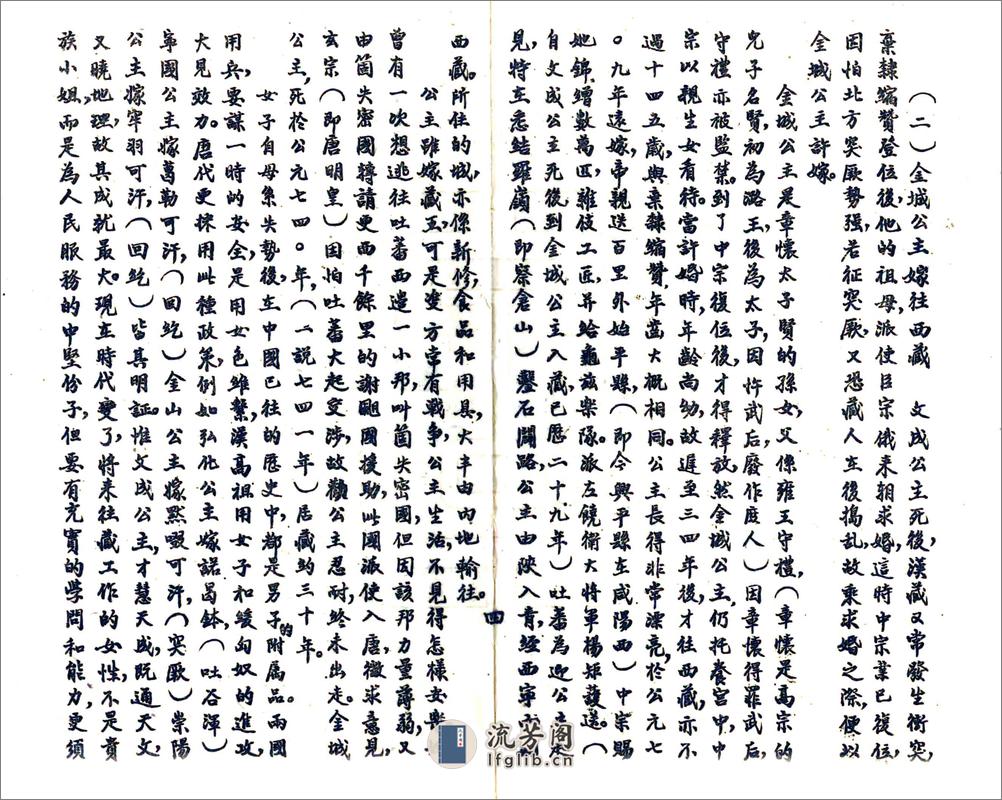 （二）金城公主嫁往西藏　文成公主死後，漢藏又常發生衝突，
棄隸縮贊登位後，他的祖母，派使臣宗俄来朝求婚，這時中宗業已復位，
因怕北方突厥勢強，若征突厥，又恐藏人在後搗乱，故乘求婚之際，便以
金城公主許嫁。
金城公主是章懷太子賢的孫女，父係雍王守禮，（章懷是高宗的
兒子名賢，初為潞王，後為太子，因忤武后，廢作庶人）因章懷得罪武后，
守禮亦被監禁。到了中宗復位後，才得釋放，然金城公主，仍托養宮中，中
宗以親生女看待。當許婚時，年齡尚幼，故遲至三四年後，才往西藏，亦不
過十四五歲，與棄隸縮贊，年齒大概相同。公主長得非常漂亮，於公元七
〇九年遠嫁，帝親送百里外始平縣，（即今興平縣在咸陽西）中宗賜
她錦繒數萬匹，雜伎工匠，并給龜兹樂隊。派左饒衛大將軍楊矩護送。（
自文成公主死後到金城公主入藏已歷二十九年）吐蕃為迎公主
見，特在悉結羅嶺（即察倉山）鑿石闢路，公主由陝入青，經西寧
西藏。所住的城，亦係新修，食品和用具，大半由內地輸往。
四
公主雖嫁藏王，可是雙方字有戰争，公主生活，不見得怎樣安樂
曾有一次想逃往吐蕃西邊一小邦，叫箇失密國，但因該邦力量薄弱，又
由箇失密國轉請更西千餘里的謝䫻國援助，此國派使入唐，徵求意見，
玄宗（即唐明皇）因怕吐蕃大起交涉，故勸公主忍耐，終未出走。金城
公主，死於公元七四〇年，（一說七四一年）居藏約三十年。
女子自母系失勢後，在中國已往的歷史中，都是男子的附属品。兩國
用兵，要謀一時的安全，是用女色維繫，漢高祖用女子和緩匈奴的進攻，
大見效力。唐代更採用此種政策，例如弘化公主嫁諾曷鉢，（吐谷渾）
寧國公主嫁葛勒可汗，（回紇）金山公主嫁默啜可汗，（突厥）崇陽
公主嫁牢羽可汗，（回紇）皆其明証。惟文成公主，才慧天成，既通天文，
又曉地理，故其成就最大。現在時代變了，將来往藏工作的女性，不是貴
族小姐，而是為人民服務的中堅份子，但要有充實的學問和能力，更須
流芳阁
lfglib.cn